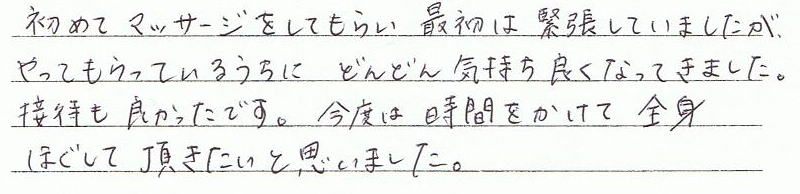 初めて マッサージをしてもらい 最初は 緊張していましたが、
やってもらっているうちに どんどん 気持ち良くなってきました。
接待も 良かったです。 今度は 時間をかけて 全身
ほぐして 頂きたいと 思いました。